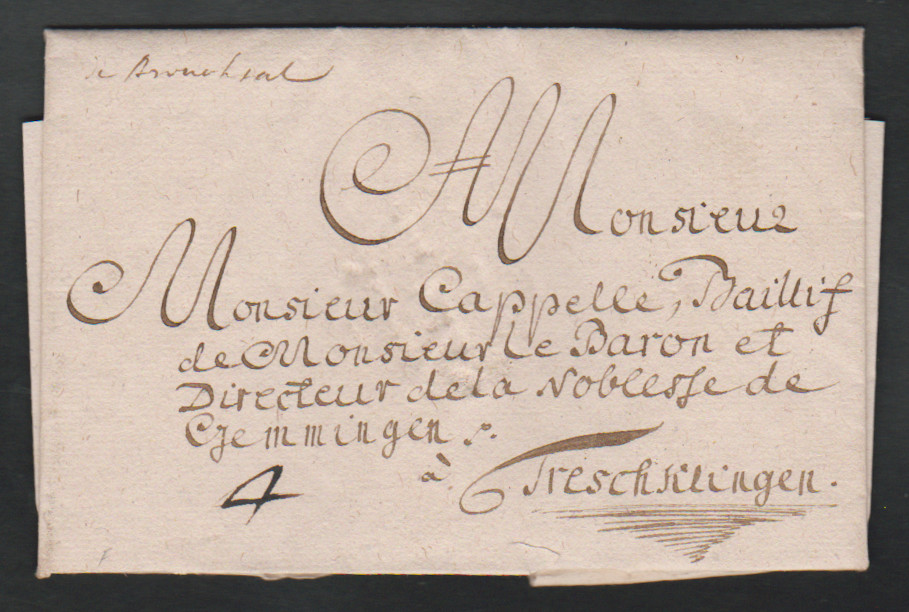 de Bruchsal
A Monsieur
Monsieur Cappelle, Baillif
de Monsieur le Baron et
Directeur de la Noblesse de
Gemmingen
à Treschklingen.
4